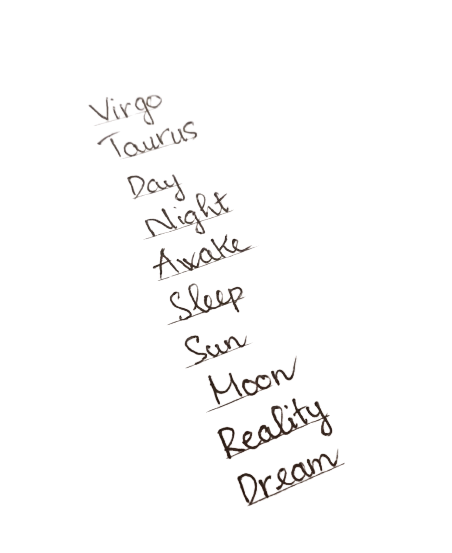 Virgo
Taurus
Day
Night
Awake
Sleep
Sun
Moon
Reality
Dream